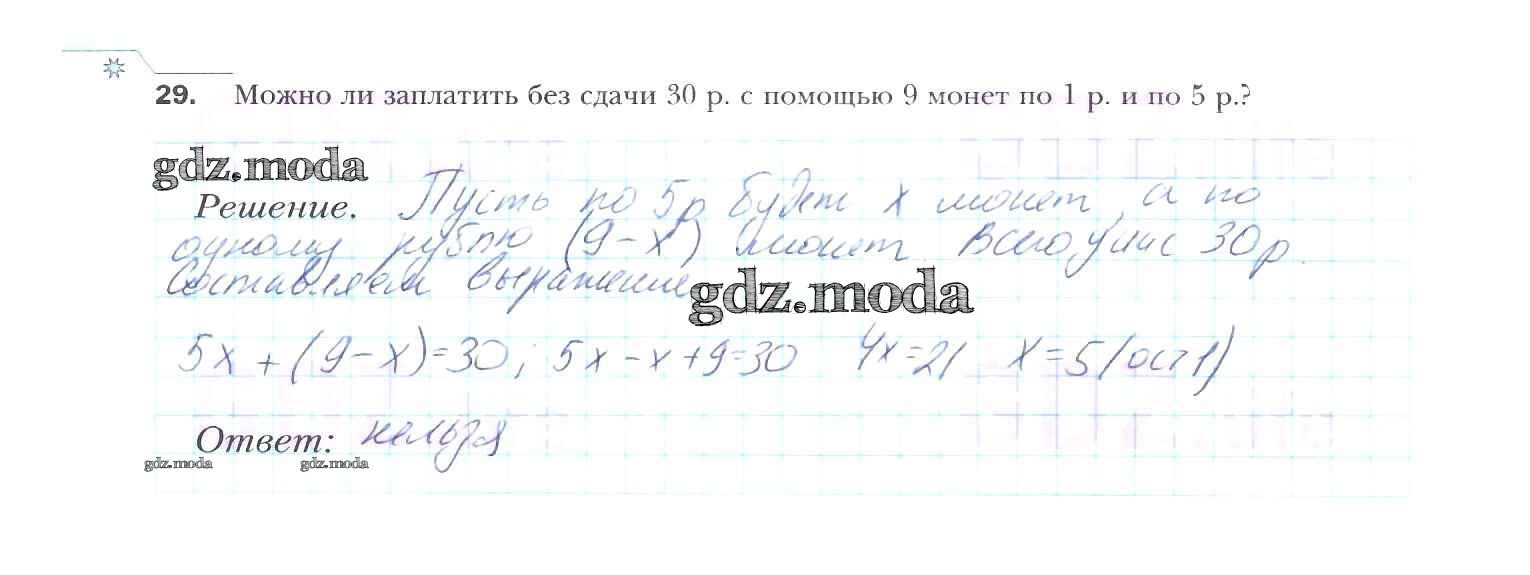 29. Можно ли заплатить без сдачи 30 р. с помощью 9 монет по 1 р. и по 5 р.?
gdz.moda
Решение. Пусть по 5р будет x монет, а по
одному рублю (9-x) монет. Всего у нас 30р.
Составляем выражение
gdz.moda
5x + (9-x)=30; 5x-x+9=30 4x=21 x=5(ост1)
Ответ: нельзя
gdz.moda gdz.moda